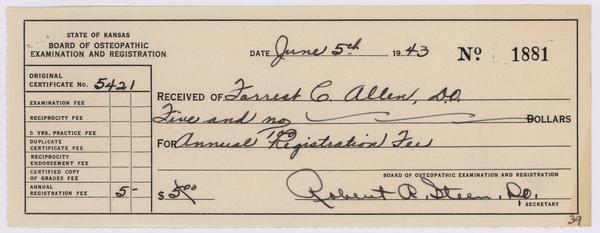 STATE OF KANSAS
BOARD OF OSTEOPATHIC
EXAMINATION AND REGISTRATION
DATE June 5th, 1943 No 1881
ORIGINAL
CERTIFICATE No. 5421
EXAMINATION FEE
RECIPROCITY FEE
5 YRS. PRACTICE FEE
DUPLICATE
CERTIFICATE FEE
RECIPROCITY
ENDORSEMENT FEE
CERTIFIED COPY
OF GRADES FEE
ANNUAL
REGISTRATION FEE 5-
RECEIVED OF Forrest C. Allen, D.O.
Five and no/100 DOLLARS
FOR Annual Registration Fee
BOARD OF OSTEOPATHIC EXAMINATION AND REGISTRATION
$ 5.00 Robert A. Steen, D.O.
SECRETARY
39